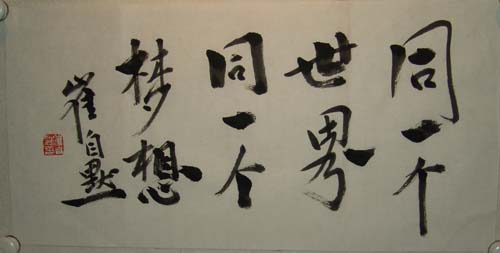 同一个
世界
同一个
梦想
崔自默